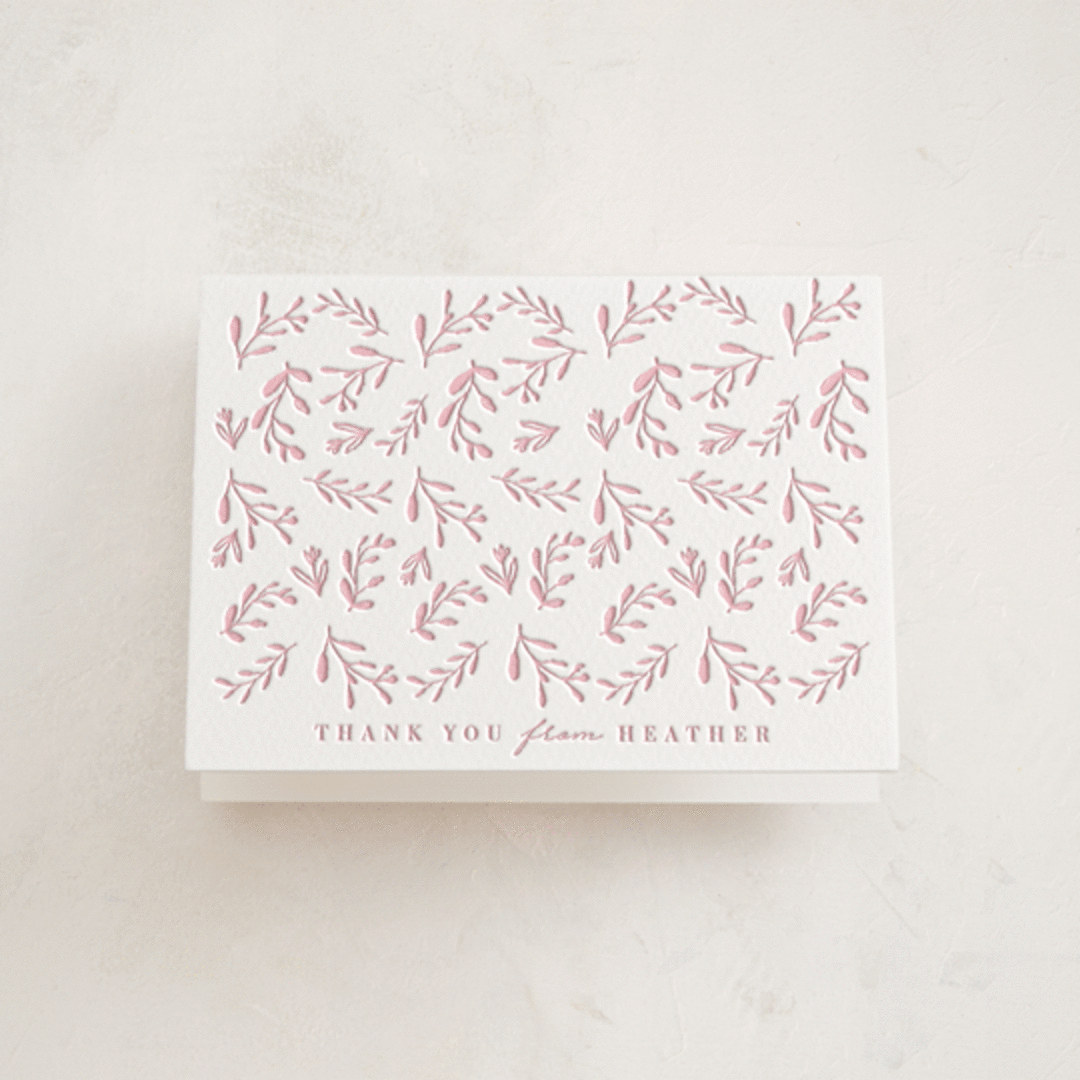 THANK YOU from HEATHER